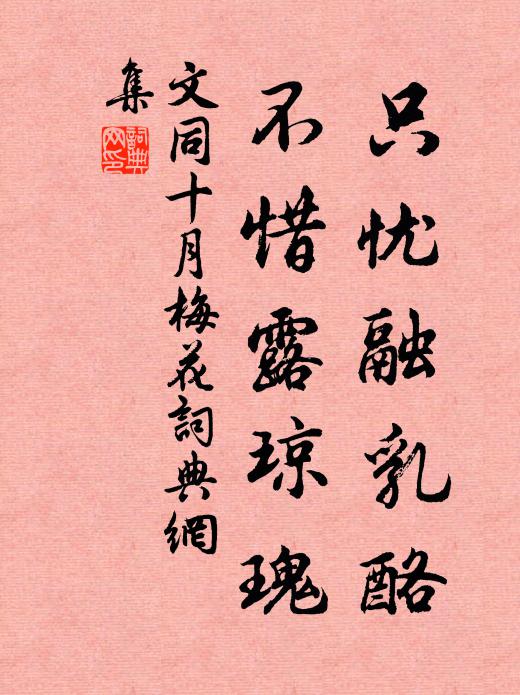 只忧融乳酪
不惜露琼瑰
文同十月梅花詞典網
集
詞典
网印